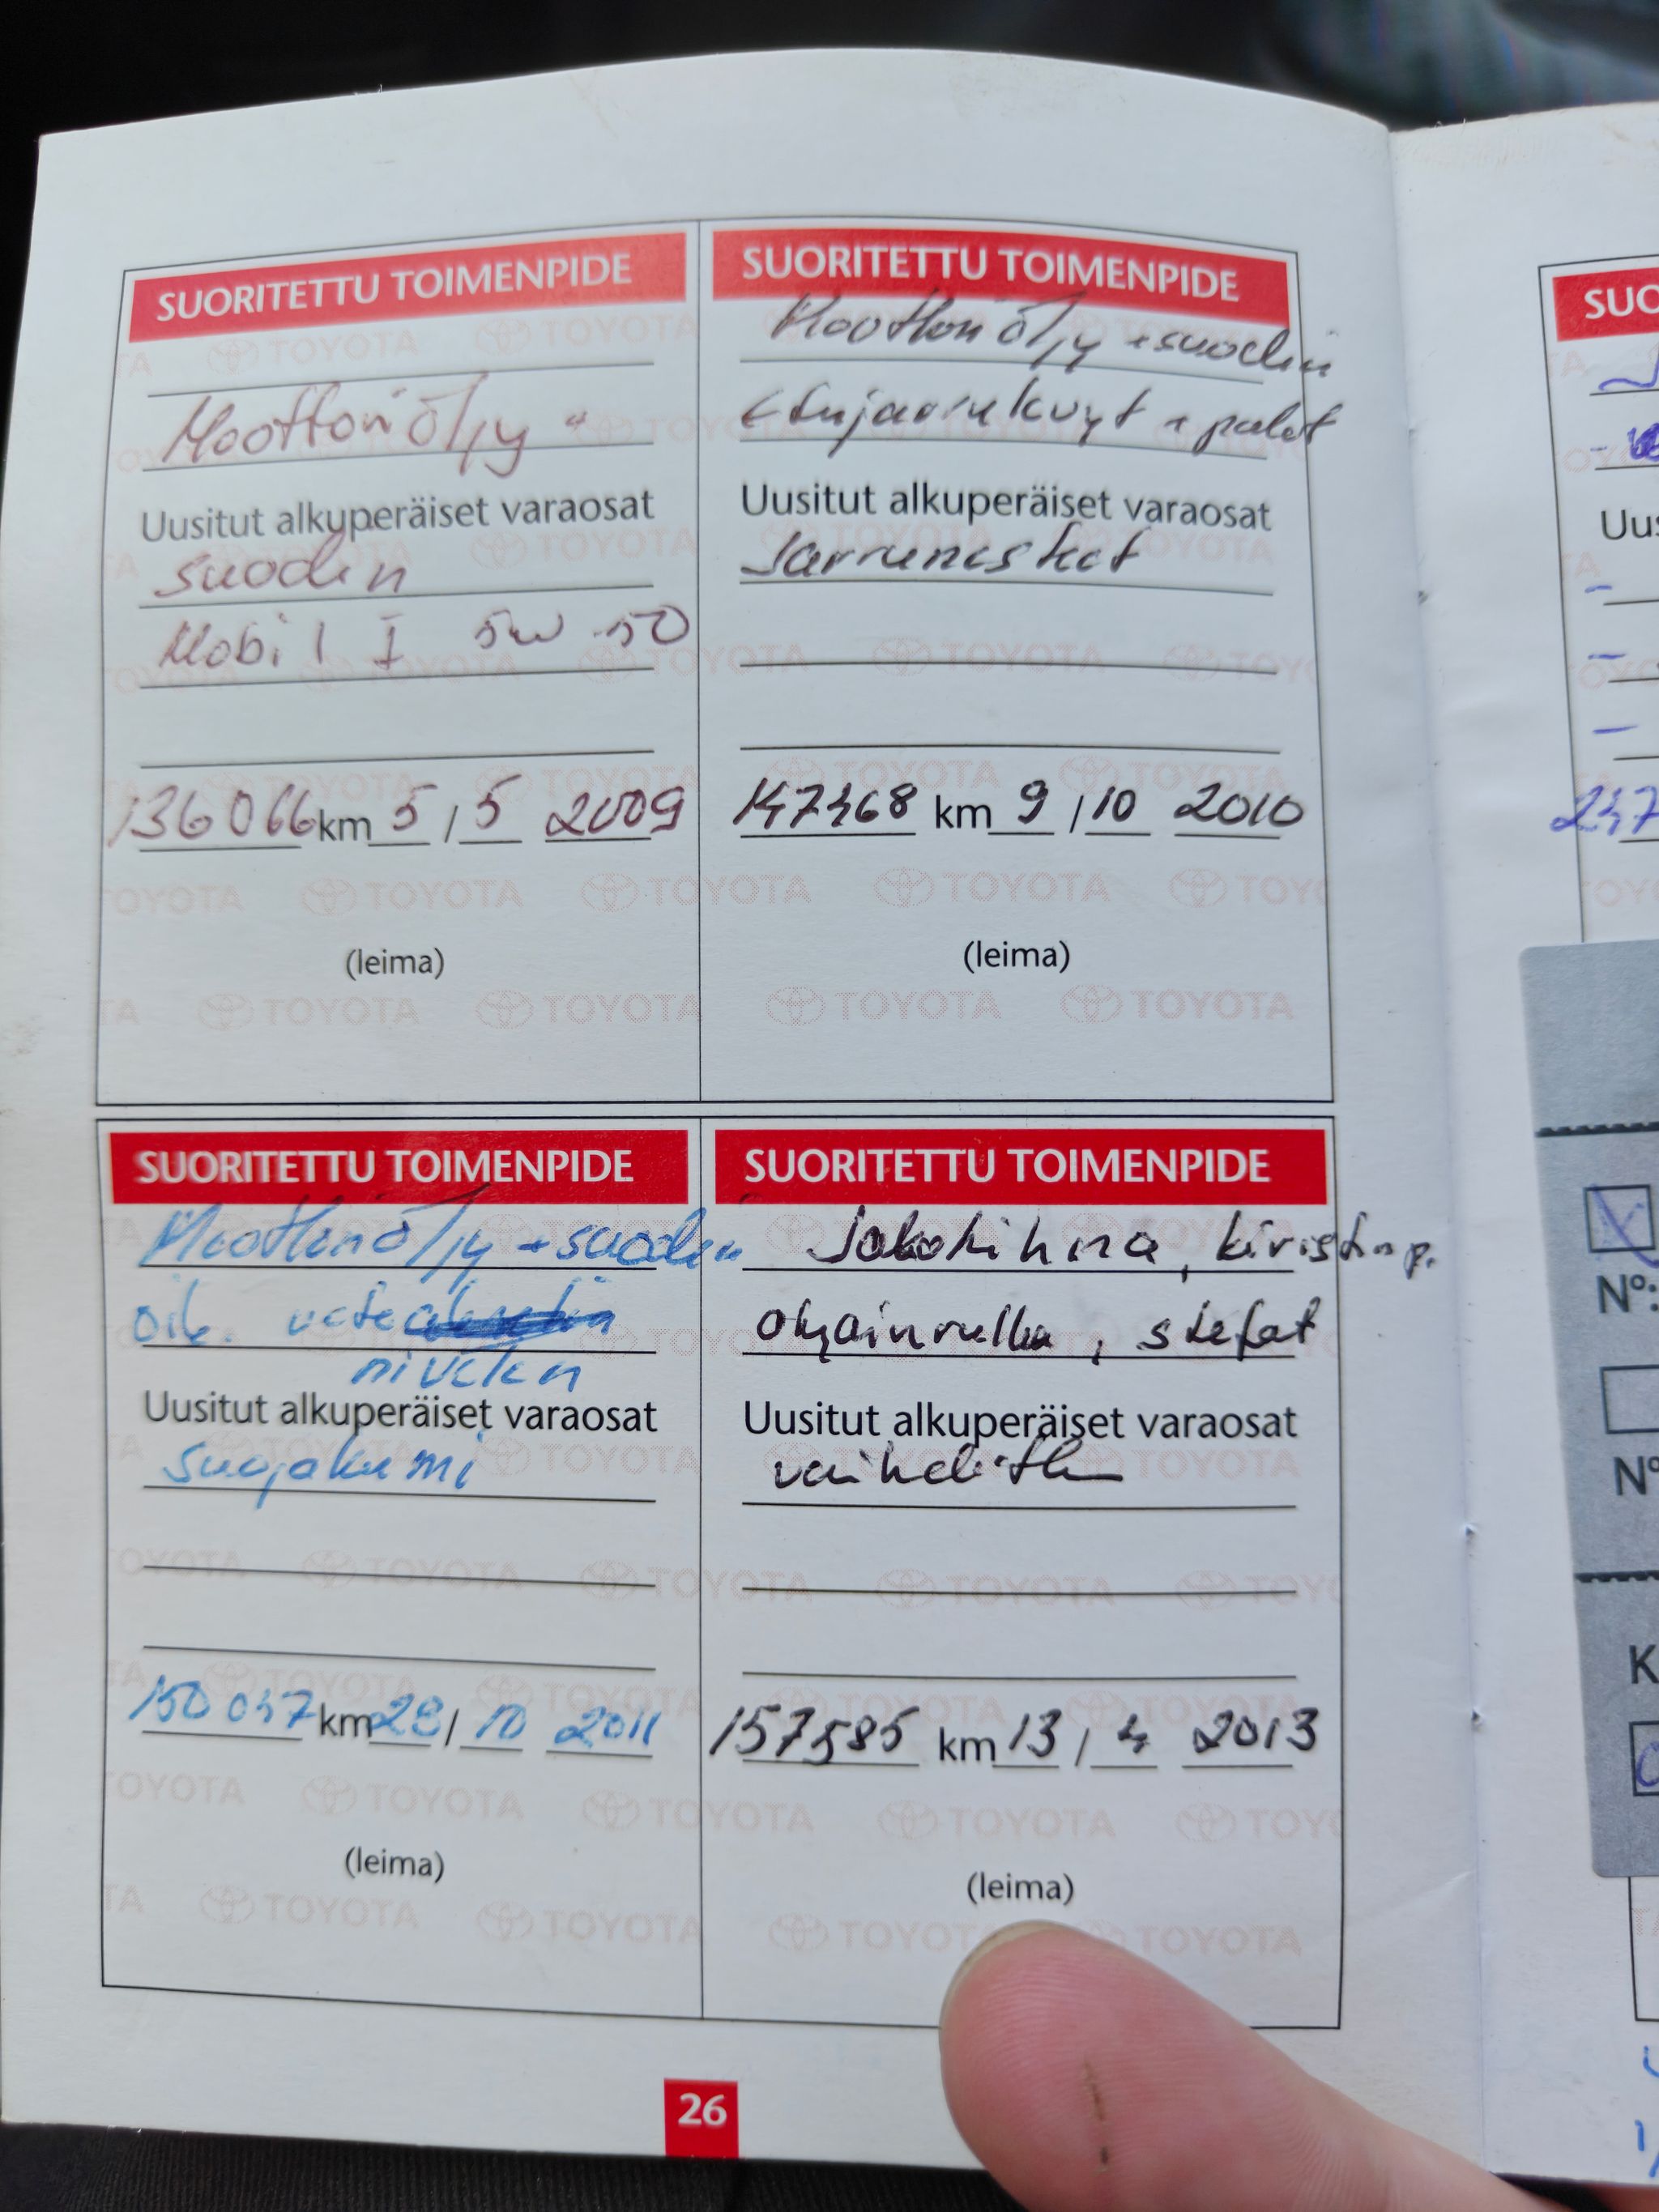 SUORITETTU TOIMENPIDE
Moottoriöljy +
Uusitut alkuperäiset varaosat
suodin
Mobil I 5w 50
136 066 km 5 / 5 2009
(leima)
SUORITETTU TOIMENPIDE
Moottoriöljy + suodin
Etujarrulevyt + palat
Uusitut alkuperäiset varaosat
Jarrunesteet
147468 km 9 / 10 2010
(leima)
SUORITETTU TOIMENPIDE
Moottoriöljy + suodin
oik. veto
nivelen
Uusitut alkuperäiset varaosat
suojakumi
150 047 km 28 / 10 2011
(leima)
SUORITETTU TOIMENPIDE
Jakohihna, kiristin p.
ohjainrulla, stefat
Uusitut alkuperäiset varaosat
vaihdettu
157585 km 13 / 4 2013
(leima)
26
SUO
Uus
247
Nº:
Nº
K